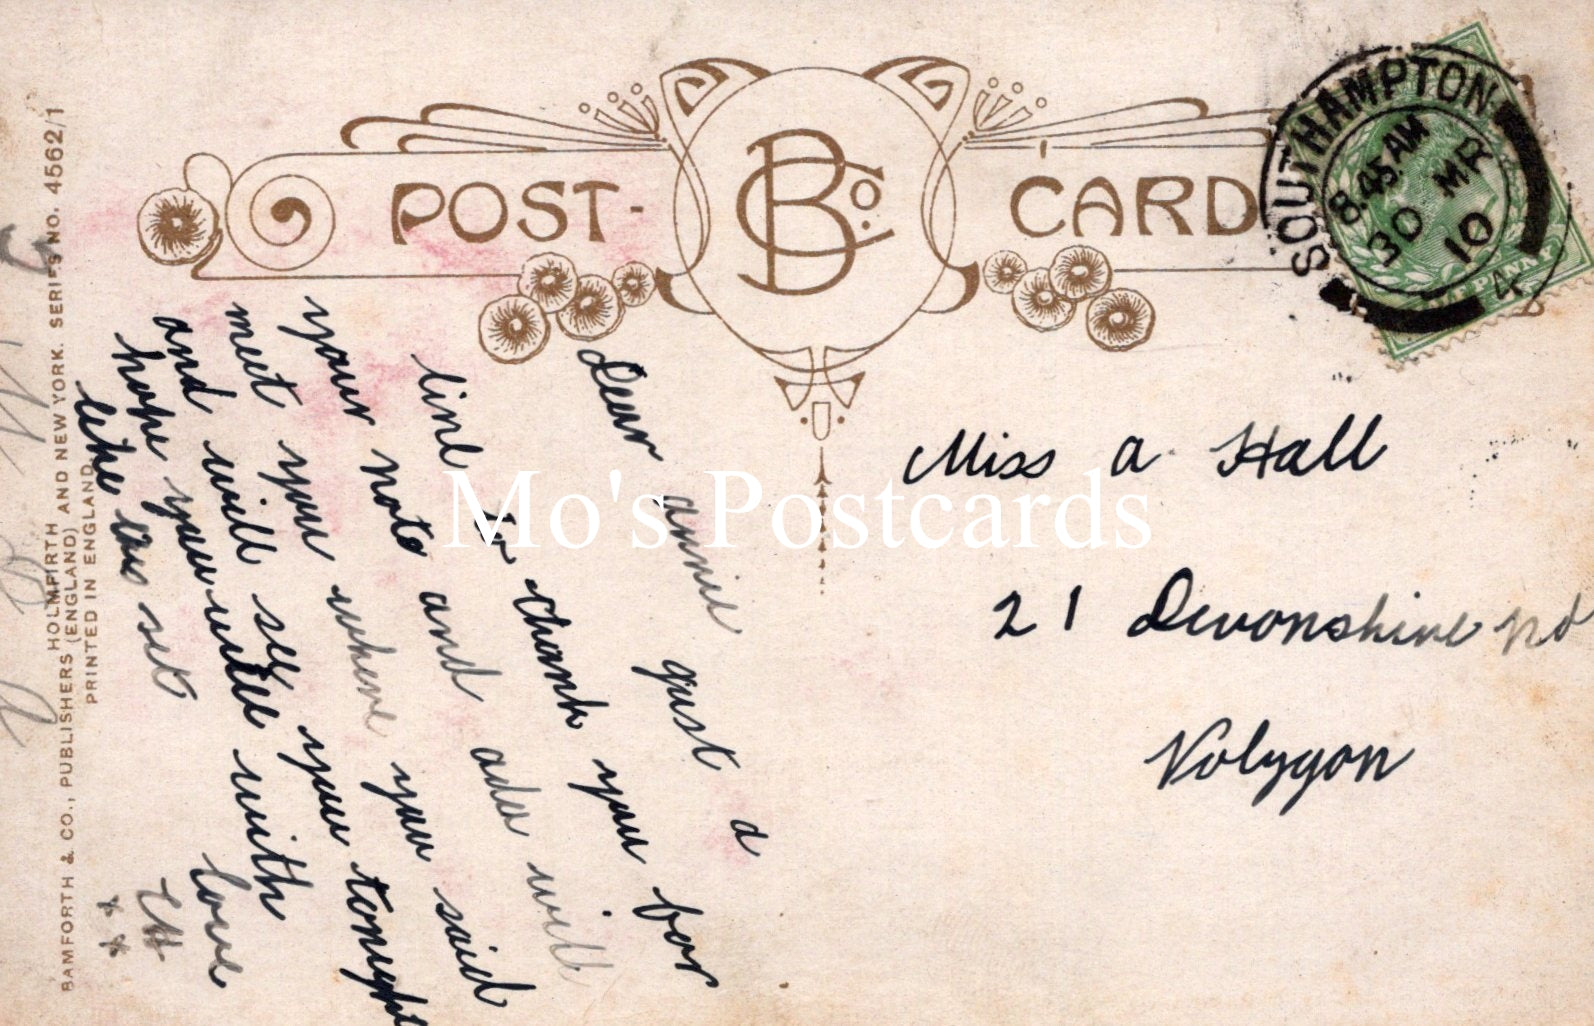 POST-CARD
BCo.
SOUTHAMPTON
8.45 AM
30 MR
10
4
Dear annie gust a
line to thank you for
your note and ada will
meet you where you said
and will see you tonight
hope you will with
like this set love
CH
x x
Miss a Hall
21 Devonshire rd
Polygon
BAMFORTH & CO., PUBLISHERS (ENGLAND) AND NEW YORK. SERIES NO. 4562/1
HOLMFIRTH
PRINTED IN ENGLAND
Mo's Postcards